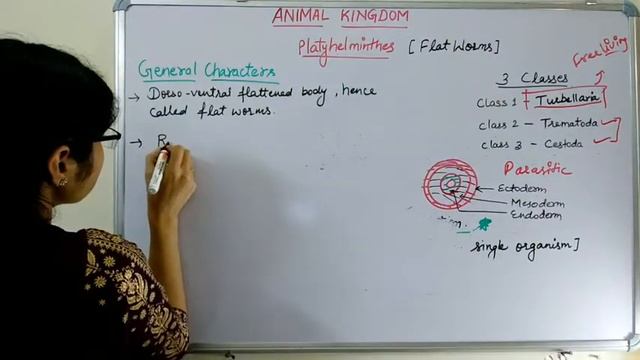 ANIMAL KINGDOM
Platyhelminthes [Flat Worms]
General Characters
→ Dorso-ventral flattened body, hence
called flat worms.
→ R
3 Classes
Free living
Class 1 - Turbellaria
Class 2 - Trematoda
Class 3 - Cestoda
Parasitic
Ectoderm
Mesoderm
Endoderm
single organism]